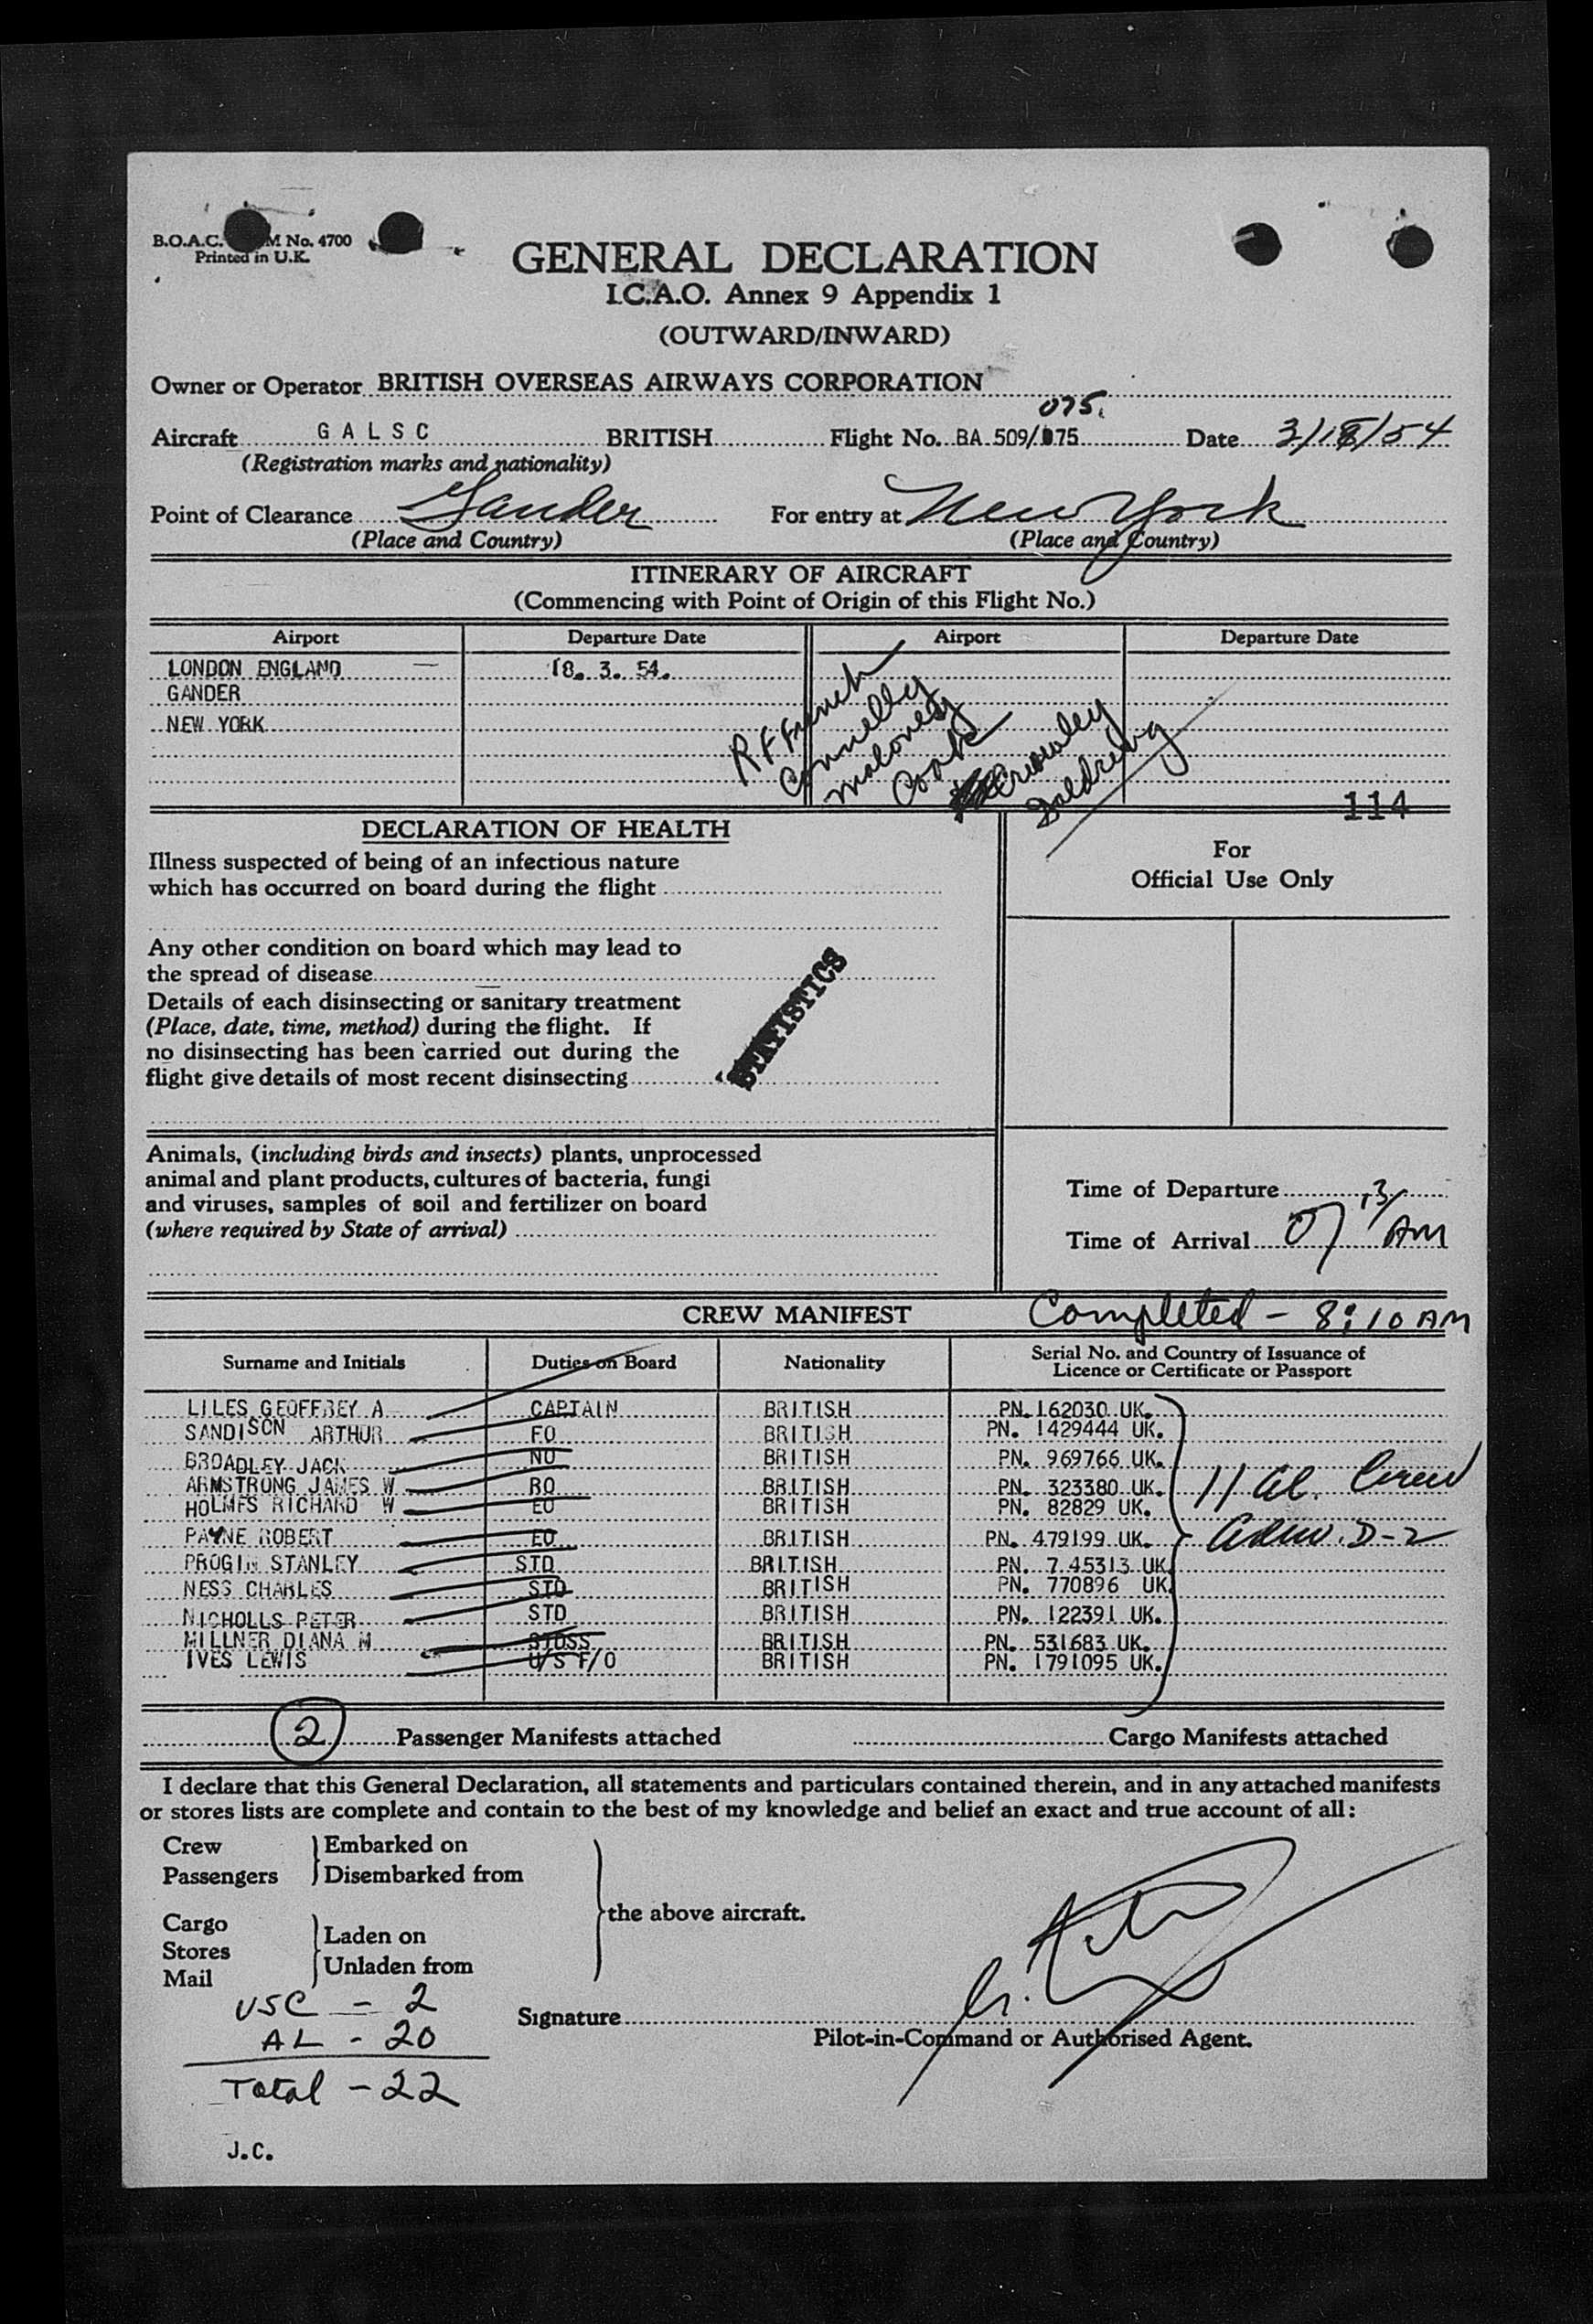 B.O.A.C. M No. 4700
Printed in U.K.
GENERAL DECLARATION
I.C.A.O. Annex 9 Appendix 1
(OUTWARD/INWARD)
Owner or Operator BRITISH OVERSEAS AIRWAYS CORPORATION
075.
Aircraft GALSC BRITISH Flight No. BA 509/075 Date 3/18/54
(Registration marks and nationality)
Point of Clearance Gander For entry at New York
(Place and Country) (Place and Country)
ITINERARY OF AIRCRAFT
(Commencing with Point of Origin of this Flight No.)
Airport Departure Date Airport Departure Date
LONDON ENGLAND — 18. 3. 54.
GANDER
NEW YORK
RF French
Connelly
Maloney
Cook
Crowley
114
DECLARATION OF HEALTH
Illness suspected of being of an infectious nature
which has occurred on board during the flight
For
Official Use Only
Any other condition on board which may lead to
the spread of disease
Details of each disinsecting or sanitary treatment
(Place, date, time, method) during the flight. If
no disinsecting has been carried out during the
flight give details of most recent disinsecting
STATISTICS
Animals, (including birds and insects) plants, unprocessed
animal and plant products, cultures of bacteria, fungi
and viruses, samples of soil and fertilizer on board
(where required by State of arrival)
Time of Departure
Time of Arrival 07 AM
CREW MANIFEST Completed - 8:10 AM
Surname and Initials Duties on Board Nationality Serial No. and Country of Issuance of
Licence or Certificate or Passport
LILES GEOFFREY A CAPTAIN BRITISH PN. 162030 UK.
SANDISON ARTHUR FO BRITISH PN. 1429444 UK.
BROADLEY JACK NO BRITISH PN. 969766 UK.
ARMSTRONG JAMES W RO BRITISH PN. 323380 UK.
HOLMES RICHARD W EO BRITISH PN. 82829 UK.
11 Al. Crew
PAYNE ROBERT EO BRITISH PN. 479199 UK.
Adm. D-2
PROGIN STANLEY STD BRITISH PN. 745313 UK
NESS CHARLES STD BRITISH PN. 770896 UK.
NICHOLLS PETER STD BRITISH PN. 122391 UK.
MILLNER DIANA M STDSS BRITISH PN. 531683 UK.
IVES LEWIS U/S F/O BRITISH PN. 1791095 UK.
2 Passenger Manifests attached Cargo Manifests attached
I declare that this General Declaration, all statements and particulars contained therein, and in any attached manifests
or stores lists are complete and contain to the best of my knowledge and belief an exact and true account of all:
Crew Embarked on
Passengers Disembarked from
the above aircraft.
Cargo Laden on
Stores
Mail Unladen from
USC - 2
AL - 20
Total - 22
Signature
Pilot-in-Command or Authorised Agent.
J.C.